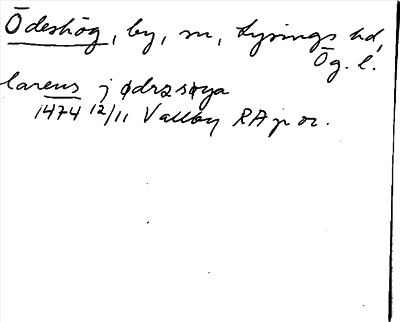 Ödeshög, by, sn, Lysings hd,
Ög. l.
larens j ødrzsøya
1474 12/11 Valby RA p or.